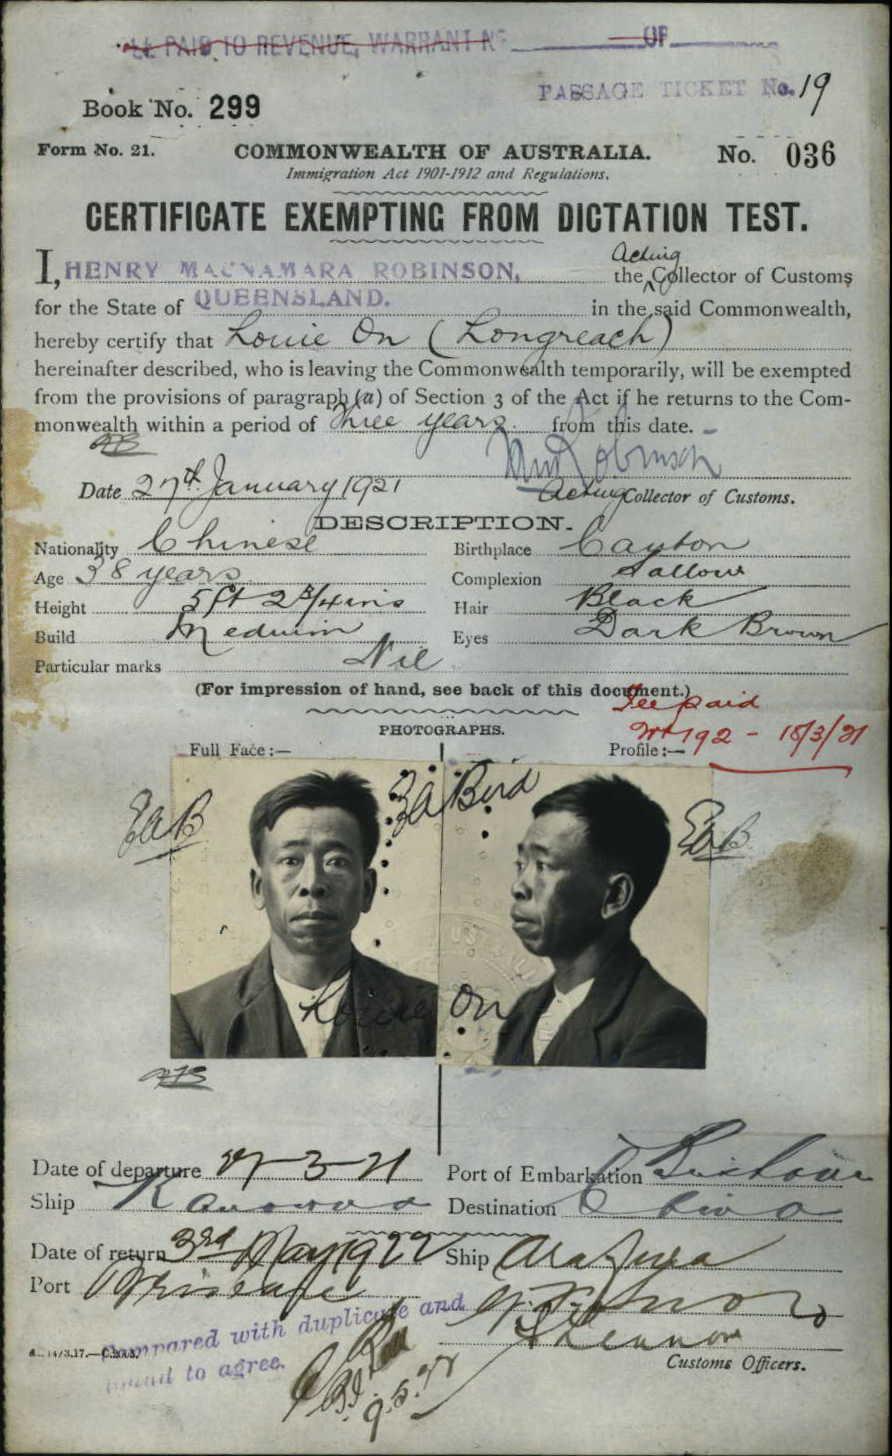 PAID TO REVENUE, WARRANT No. OF
PASSAGE TICKET No. 19
Book No. 299
Form No. 21.
COMMONWEALTH OF AUSTRALIA.
No. 036
Immigration Act 1901-1912 and Regulations.
CERTIFICATE EXEMPTING FROM DICTATION TEST.
I, HENRY MACNAMARA ROBINSON, the Acting Collector of Customs
for the State of QUEENSLAND. in the said Commonwealth,
hereby certify that Louie On (Longreach)
hereinafter described, who is leaving the Commonwealth temporarily, will be exempted
from the provisions of paragraph (a) of Section 3 of the Act if he returns to the Com-
monwealth within a period of three years from this date.
HMRobinson
Date 27th January 1921
Acting Collector of Customs.
DESCRIPTION.
Nationality Chinese
Birthplace Canton
Age 38 years
Complexion Sallow
Height 5ft 2 3/4 ins
Hair Black
Build Medium
Eyes Dark Brown
Particular marks Nil
(For impression of hand, see back of this document.)
Fee paid
Wt 192 - 18/3/21
PHOTOGRAPHS.
Full Face:—
Profile:—
EAB
EA Bird
EAB
Louie On
Date of departure 3-21
Port of Embarkation Brisbane
Ship Kanowna
Destination China
Date of return 3rd May 1922
Ship Arafura
Port Brisbane
Compared with duplicate and
found to agree.
9.5.22
Customs Officers.